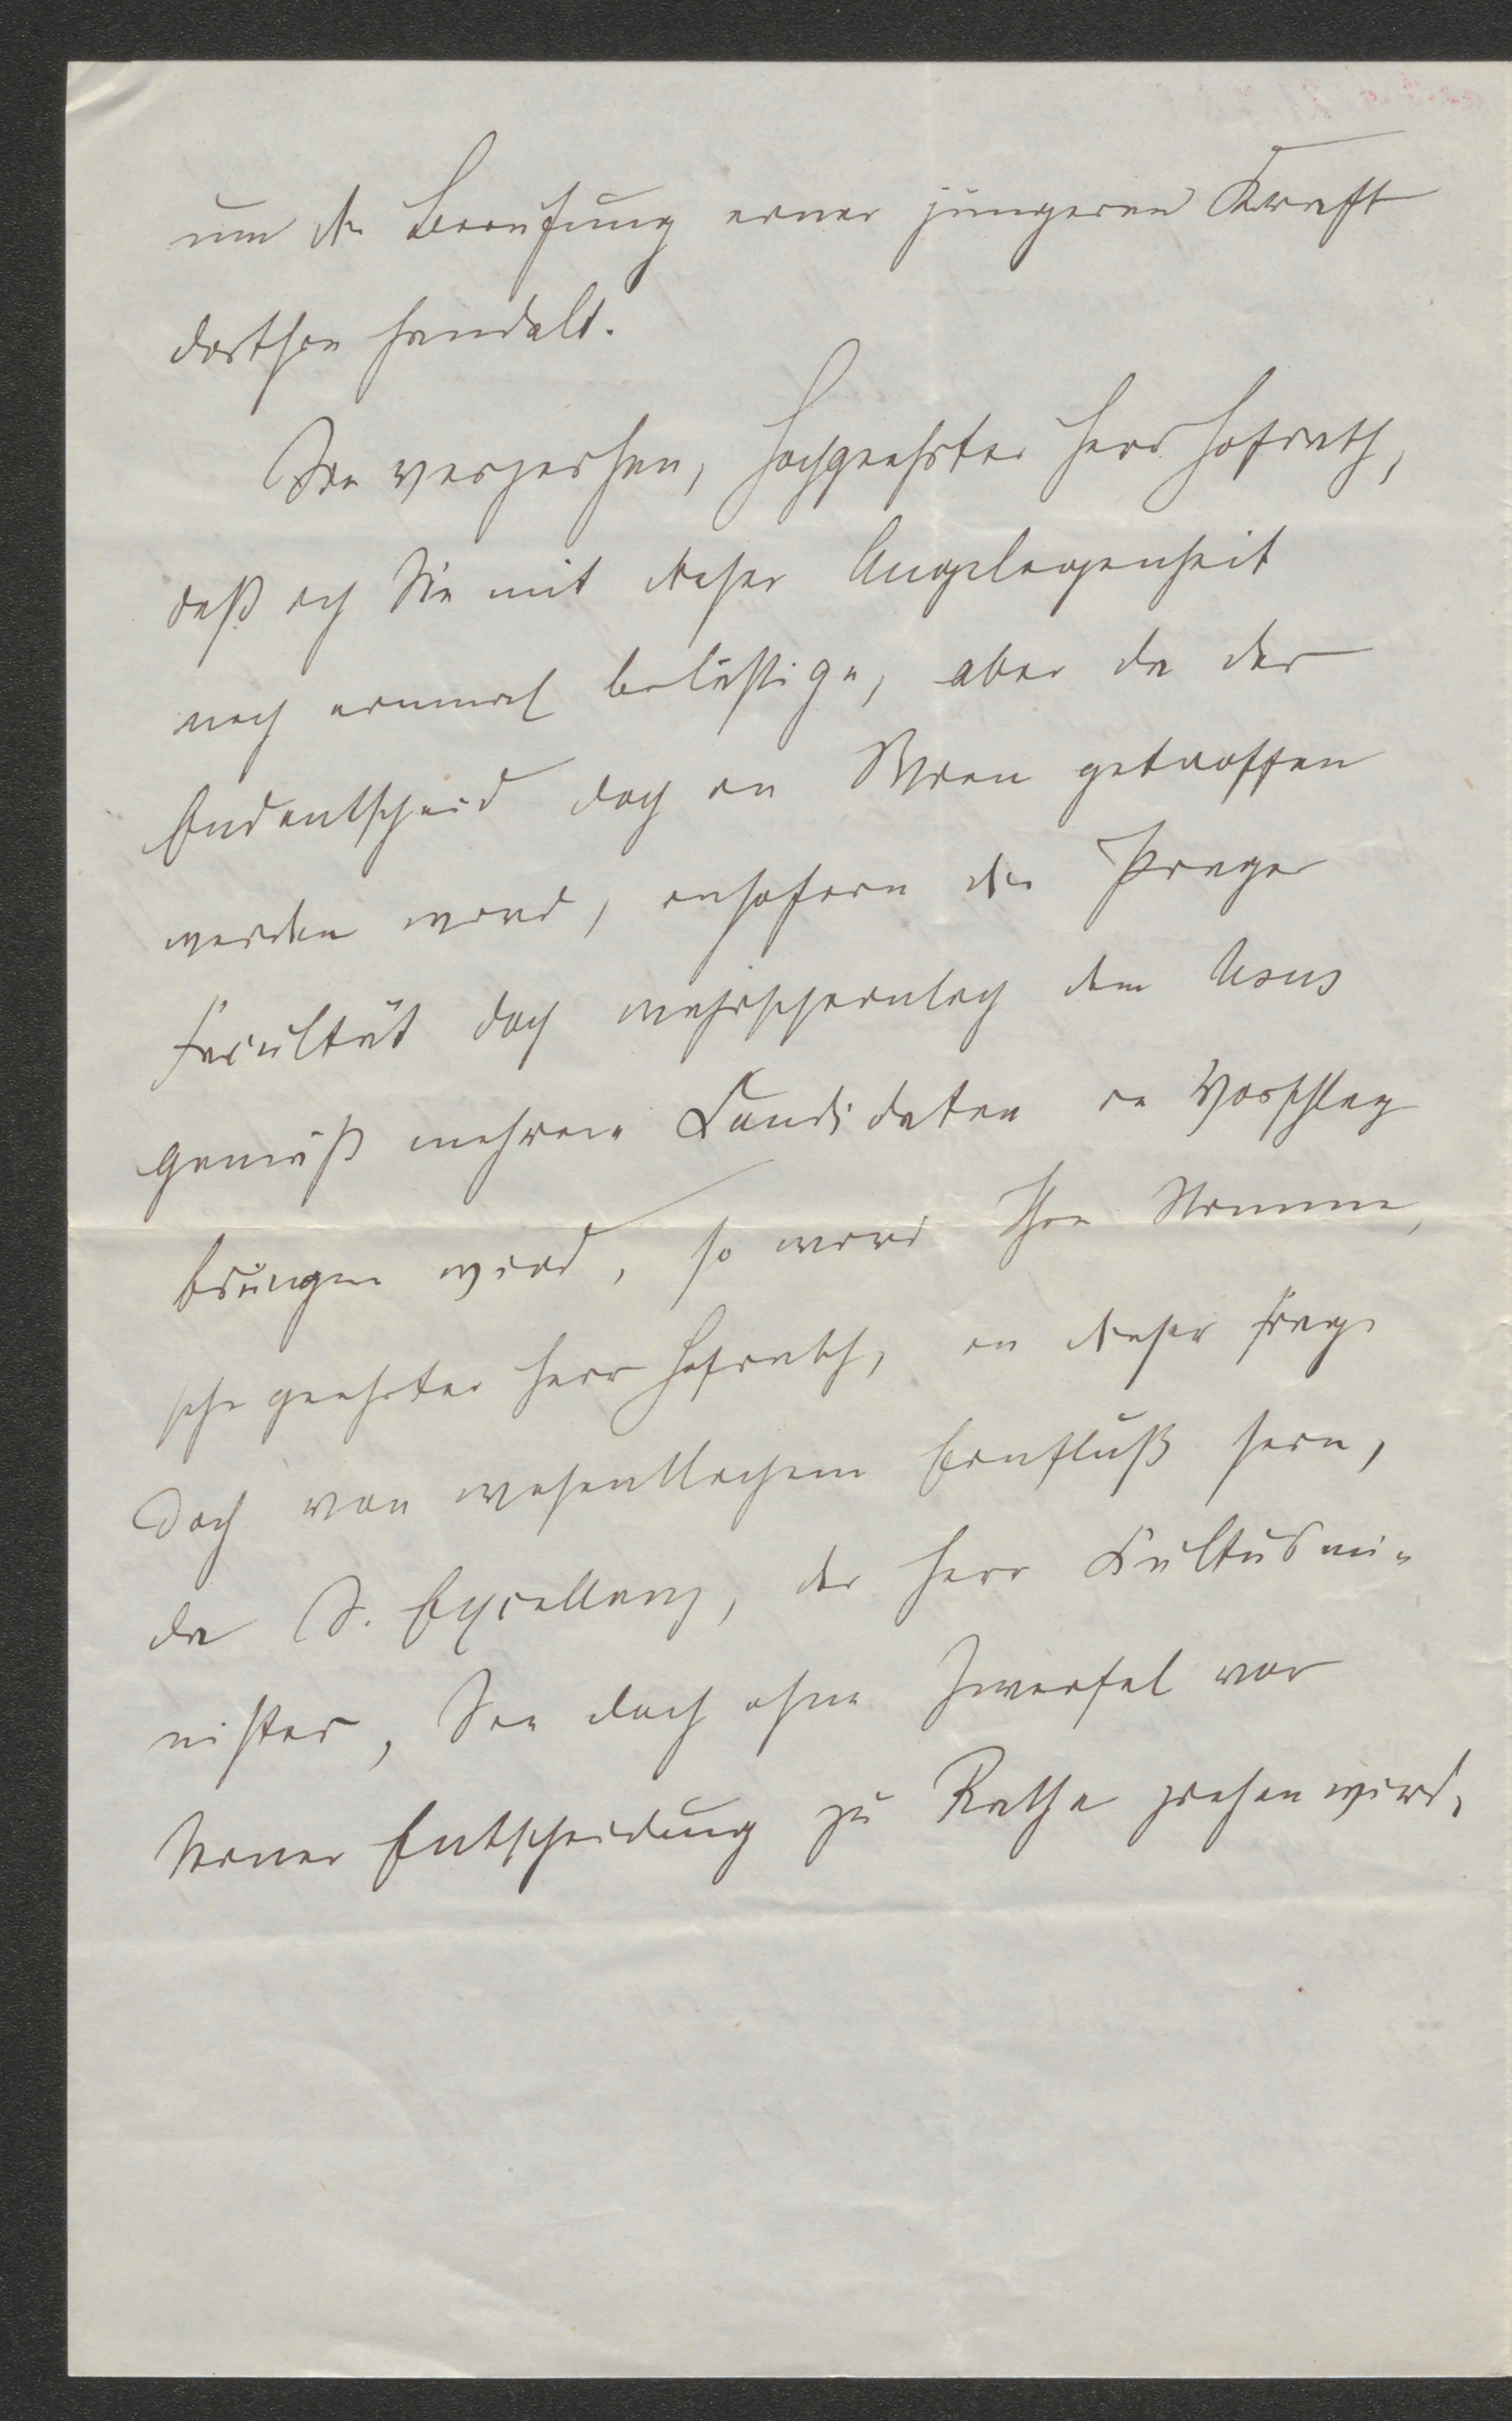 um die Berufung einer jüngeren Kraft
dorthin handelt.
Sie verzeihen, hochgeehrter Herr Hofrath,
daß ich Sie mit dieser Angelegenheit
noch einmal belästige, aber da der
Endentscheid doch in Wien getroffen
werden wird, insofern die Prager
Facultät doch wahrscheinlich dem Usus
gemäß mehrere Candidaten in Vorschlag
bringen wird, so wird Ihre Stimme,
sehr geehrter Herr Hofrath, in dieser Frage
doch von wesentlichem Einfluß sein,
da S. Excellenz, der Herr Kultusmi-
nister, Sie doch ohne Zweifel vor
Seiner Entscheidung zu Rathe ziehen wird.